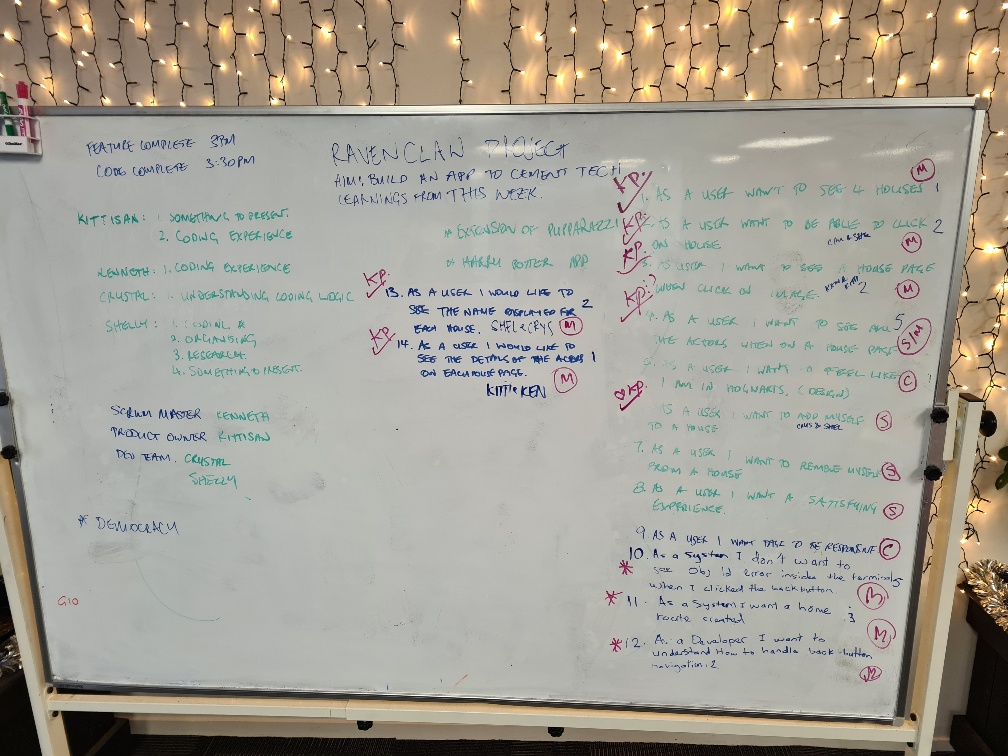 FEATURE COMPLETE 3PM
CODE COMPLETE 3:30PM
KITTISAN: 1. SOMETHING TO PRESENT.
2. CODING EXPERIENCE
KENNETH: 1. CODING EXPERIENCE
CRYSTAL: 1. UNDERSTANDING CODING LOGIC
SHELLY: 1. CODING
2. ORGANISING
3. RESEARCH.
4. SOMETHING TO PRESENT.
SCRUM MASTER KENNETH
PRODUCT OWNER KITTISAN
DEV TEAM. CRYSTAL
SHELLY
* DEMOCRACY
G10
RAVENCLAN PROJECT
AIM: BUILD AN APP TO CEMENT TECH
LEARNINGS FROM THIS WEEK.
EXTENSION OF PUPPARAZZI
HARRY POTTER APP
KP.
13. AS A USER I WOULD LIKE TO
SEE THE NAME DISPLAYED FOR 2
EACH HOUSE. SHEL & CRYS M
KP
14. AS A USER I WOULD LIKE TO
SEE THE DETAILS OF THE ACTORS 1
ON EACH HOUSE PAGE.
KITT & KEN M
KP. M
1. AS A USER WANT TO SEE 4 HOUSES 1
KP. AS A USER WANT TO BE ABLE TO CLICK 2
ON HOUSE CRYS & SHEL M
KP 3. AS USER I WANT TO SEE A HOUSE PAGE
KP: WHEN CLICK ON IMAGE. 2 M
4. AS A USER I WANT TO SEE ALL 5
THE ACTORS WHEN ON A HOUSE PAGE S/M
A USER I WANT TO FEEL LIKE
KP. I AM IN HOGWARTS. (DESIGN) C
AS A USER I WANT TO ADD MYSELF
TO A HOUSE CRYS & SHEL S
7. AS A USER I WANT TO REMOVE MYSELF
FROM A HOUSE S
8. AS A USER I WANT A SATISFYING
EXPERIENCE. S
9. AS A USER I WANT PAGE TO BE RESPONSIVE C
10. As a System I don't want to
* see Obj id error inside the terminals
when I clicked the back button M
* 11. As a System I want a home 3
route created M
* 12. As a Developer I want to
understand How to handle back-button
navigation. 2